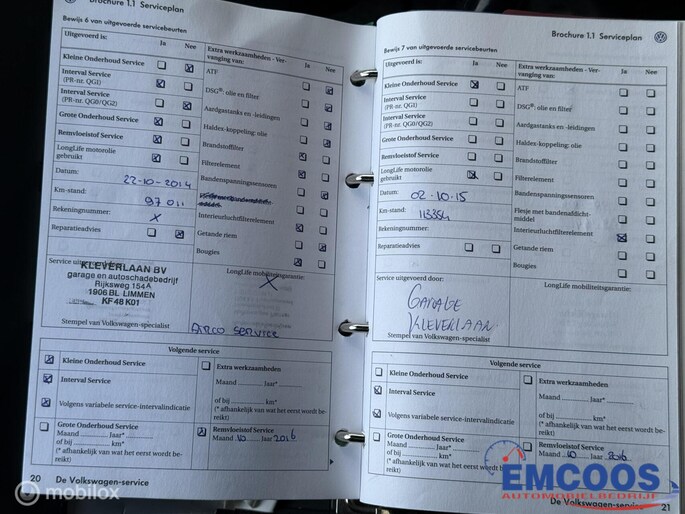 Brochure 1.1 Serviceplan
Bewijs 6 van uitgevoerde servicebeurten
Uitgevoerd is: Ja Nee
Kleine Onderhoud Service
Interval Service
(PR-nr. QG1)
Interval Service
(PR-nr. QG0/QG2)
Grote Onderhoud Service
Remvloeistof Service
LongLife motorolie
gebruikt
Datum:
22-10-2014
Km-stand:
97 011
Rekeningnummer:
X
Reparatieadvies
Extra werkzaamheden - Ver-
vanging van: Ja Nee
ATF
DSG®: olie en filter
Aardgastanks en -leidingen
Haldex-koppeling: olie
Brandstoffilter
Filterelement
Bandenspanningssensoren
Interieurluchtfilterelement
Getande riem
Bougies
Service uitgevoerd door:
KLEVERLAAN BV
garage en autoschadebedrijf
Rijksweg 154A
1906 BL LIMMEN
KF 48 K01
Stempel van Volkswagen-specialist
LongLife mobiliteitsgarantie:
X
AIRCO SERVICE
Volgende service
Kleine Onderhoud Service
Interval Service
Volgens variabele service-intervalindicatie
Grote Onderhoud Service
Maand ........ Jaar*........
of bij ........ km*
(* afhankelijk van wat het eerst wordt be-
reikt)
Extra werkzaamheden
Maand ........ Jaar*........
of bij ........ km*
(* afhankelijk van wat het eerst wordt be-
reikt)
Remvloeistof Service
Maand 10 Jaar 2016
20 De Volkswagen-service
Brochure 1.1 Serviceplan
Bewijs 7 van uitgevoerde servicebeurten
Uitgevoerd is: Ja Nee
Kleine Onderhoud Service
Interval Service
(PR-nr. QG1)
Interval Service
(PR-nr. QG0/QG2)
Grote Onderhoud Service
Remvloeistof Service
LongLife motorolie
gebruikt
Datum: 02-10-15
Km-stand: 113354
Rekeningnummer:
Reparatieadvies
Extra werkzaamheden - Ver-
vanging van: Ja Nee
ATF
DSG®: olie en filter
Aardgastanks en -leidingen
Haldex-koppeling: olie
Brandstoffilter
Filterelement
Bandenspanningssensoren
Flesje met bandenafdicht-
middel
Interieurluchtfilterelement
Getande riem
Bougies
Service uitgevoerd door:
GARAGE
KLEVERLAAN
Stempel van Volkswagen-specialist
LongLife mobiliteitsgarantie:
Volgende service
Kleine Onderhoud Service
Interval Service
Volgens variabele service-intervalindicatie
Grote Onderhoud Service
Maand ........ Jaar*........
of bij ........ km*
(* afhankelijk van wat het eerst wordt be-
reikt)
Extra werkzaamheden
Maand ........ Jaar*........
of bij ........ km*
(* afhankelijk van wat het eerst wordt be-
reikt)
Remvloeistof Service
Maand 10 Jaar 2016
De Volkswagen-service 21
EMCOOS
AUTOMOBIELBEDRIJF
mobilox